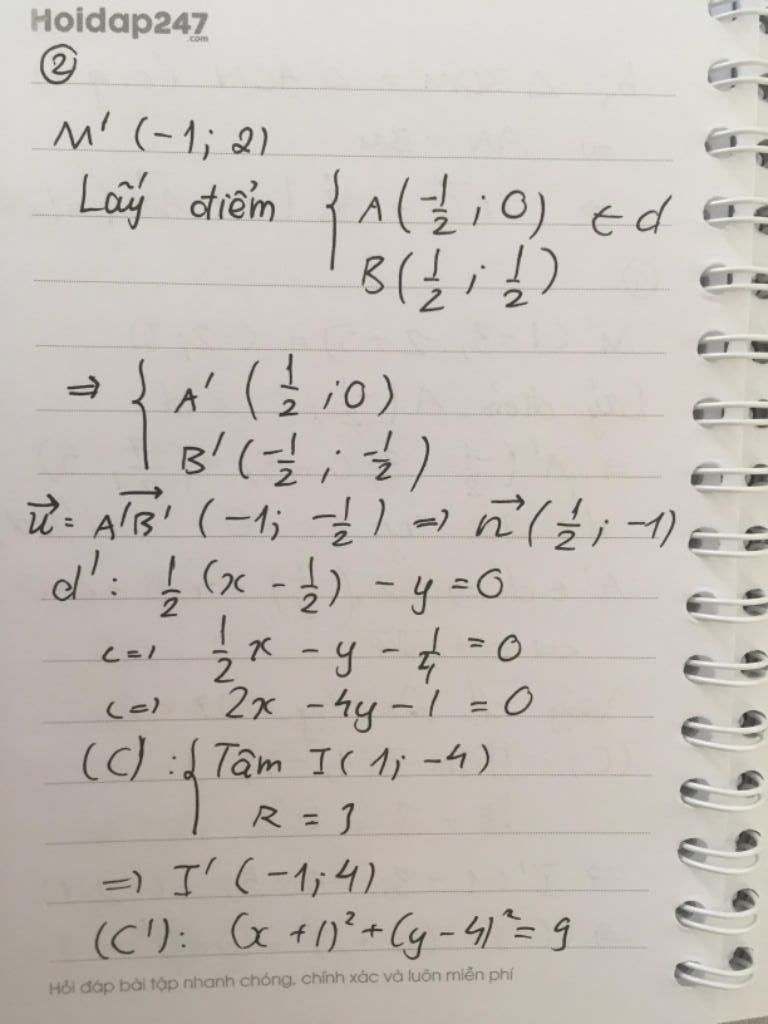 Hoidap247
.com
②
M' (-1; 2)
Lấy điểm { A(-1/2 ; 0) ∈ d
B(1/2 ; 1/2)
⇒ { A' (1/2 ; 0)
B' (-1/2 ; -1/2)
u⃗ = A'B'⃗ (-1; -1/2) ⇒ n⃗ (1/2 ; -1)
d' : 1/2 (x - 1/2) - y = 0
<=> 1/2 x - y - 1/4 = 0
<=> 2x - 4y - 1 = 0
(C) : { Tâm I( 1; -4)
R = 3
=> I' (-1; 4)
(C') : (x + 1)² + (y - 4)² = 9
Hỏi đáp bài tập nhanh chóng, chính xác và luôn miễn phí